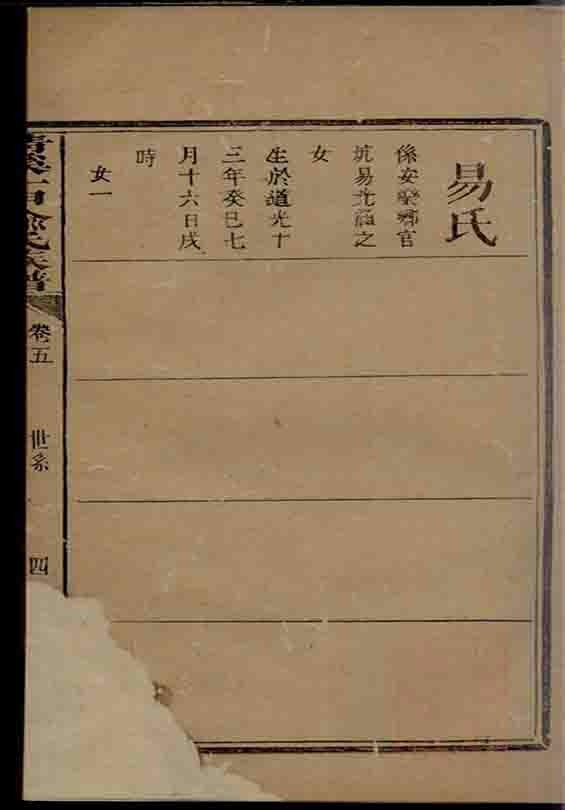 易氏
係安樂鄉官
坑易尤龍之
女
生於道光十
三年癸巳七
月十六日戌
時
女一
氏族譜
卷五
世系
四